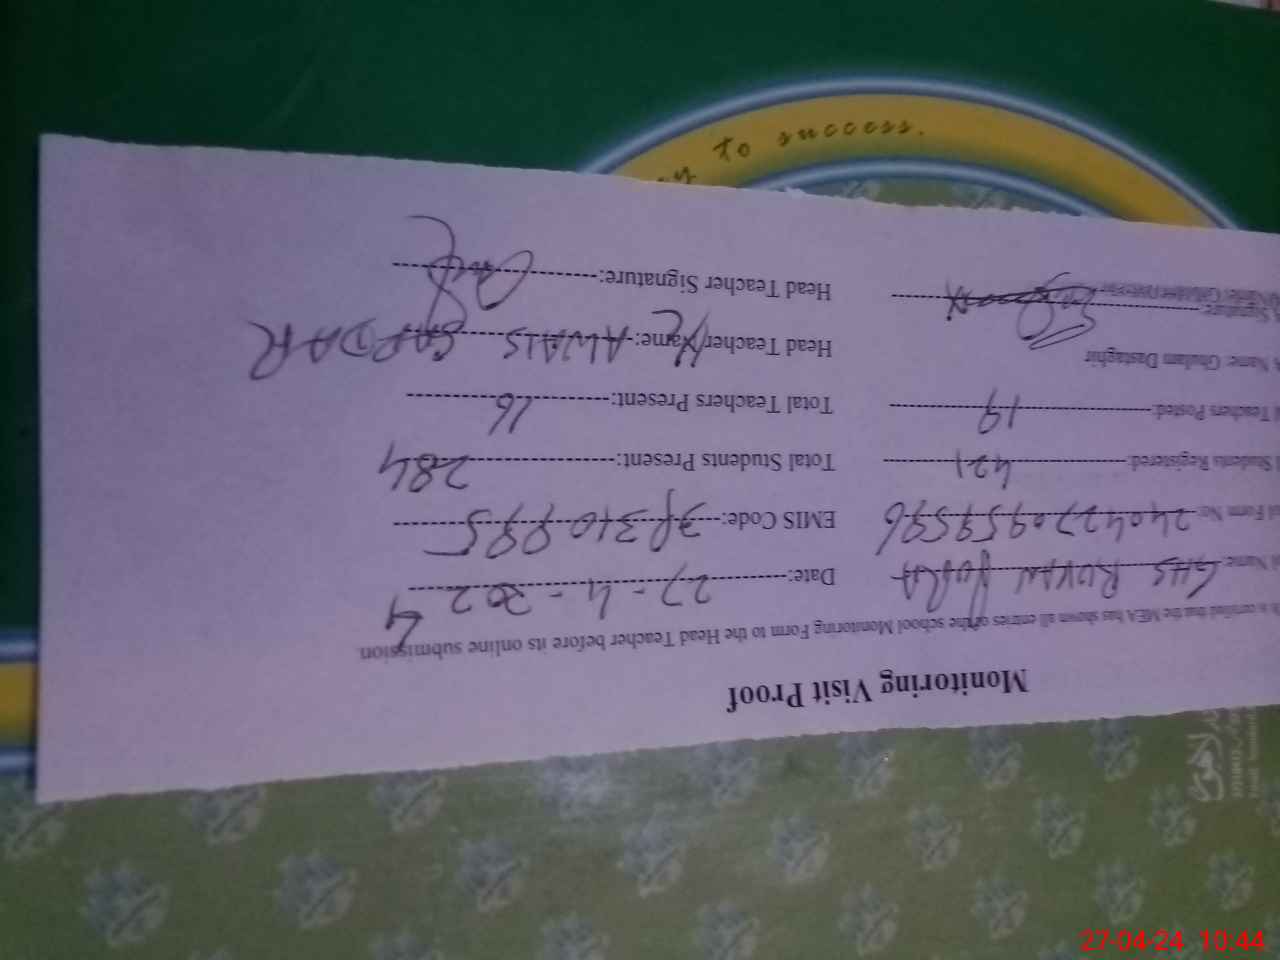 Monitoring Visit Proof
is certified that the MEA has shown all entries of the school Monitoring Form to the Head Teacher before its online submission.
Name: GHS Date: 27-4-2024
Form No: 2404270959596 EMIS Code:
Students Registered: 421 Total Students Present: 284
Teachers Posted: 19 Total Teachers Present: 16
Name: Ghulam Dastaghir Head Teacher Name: AWAIS SAFDAR
Signature: Head Teacher Signature:
to success.
27-04-24 10:44